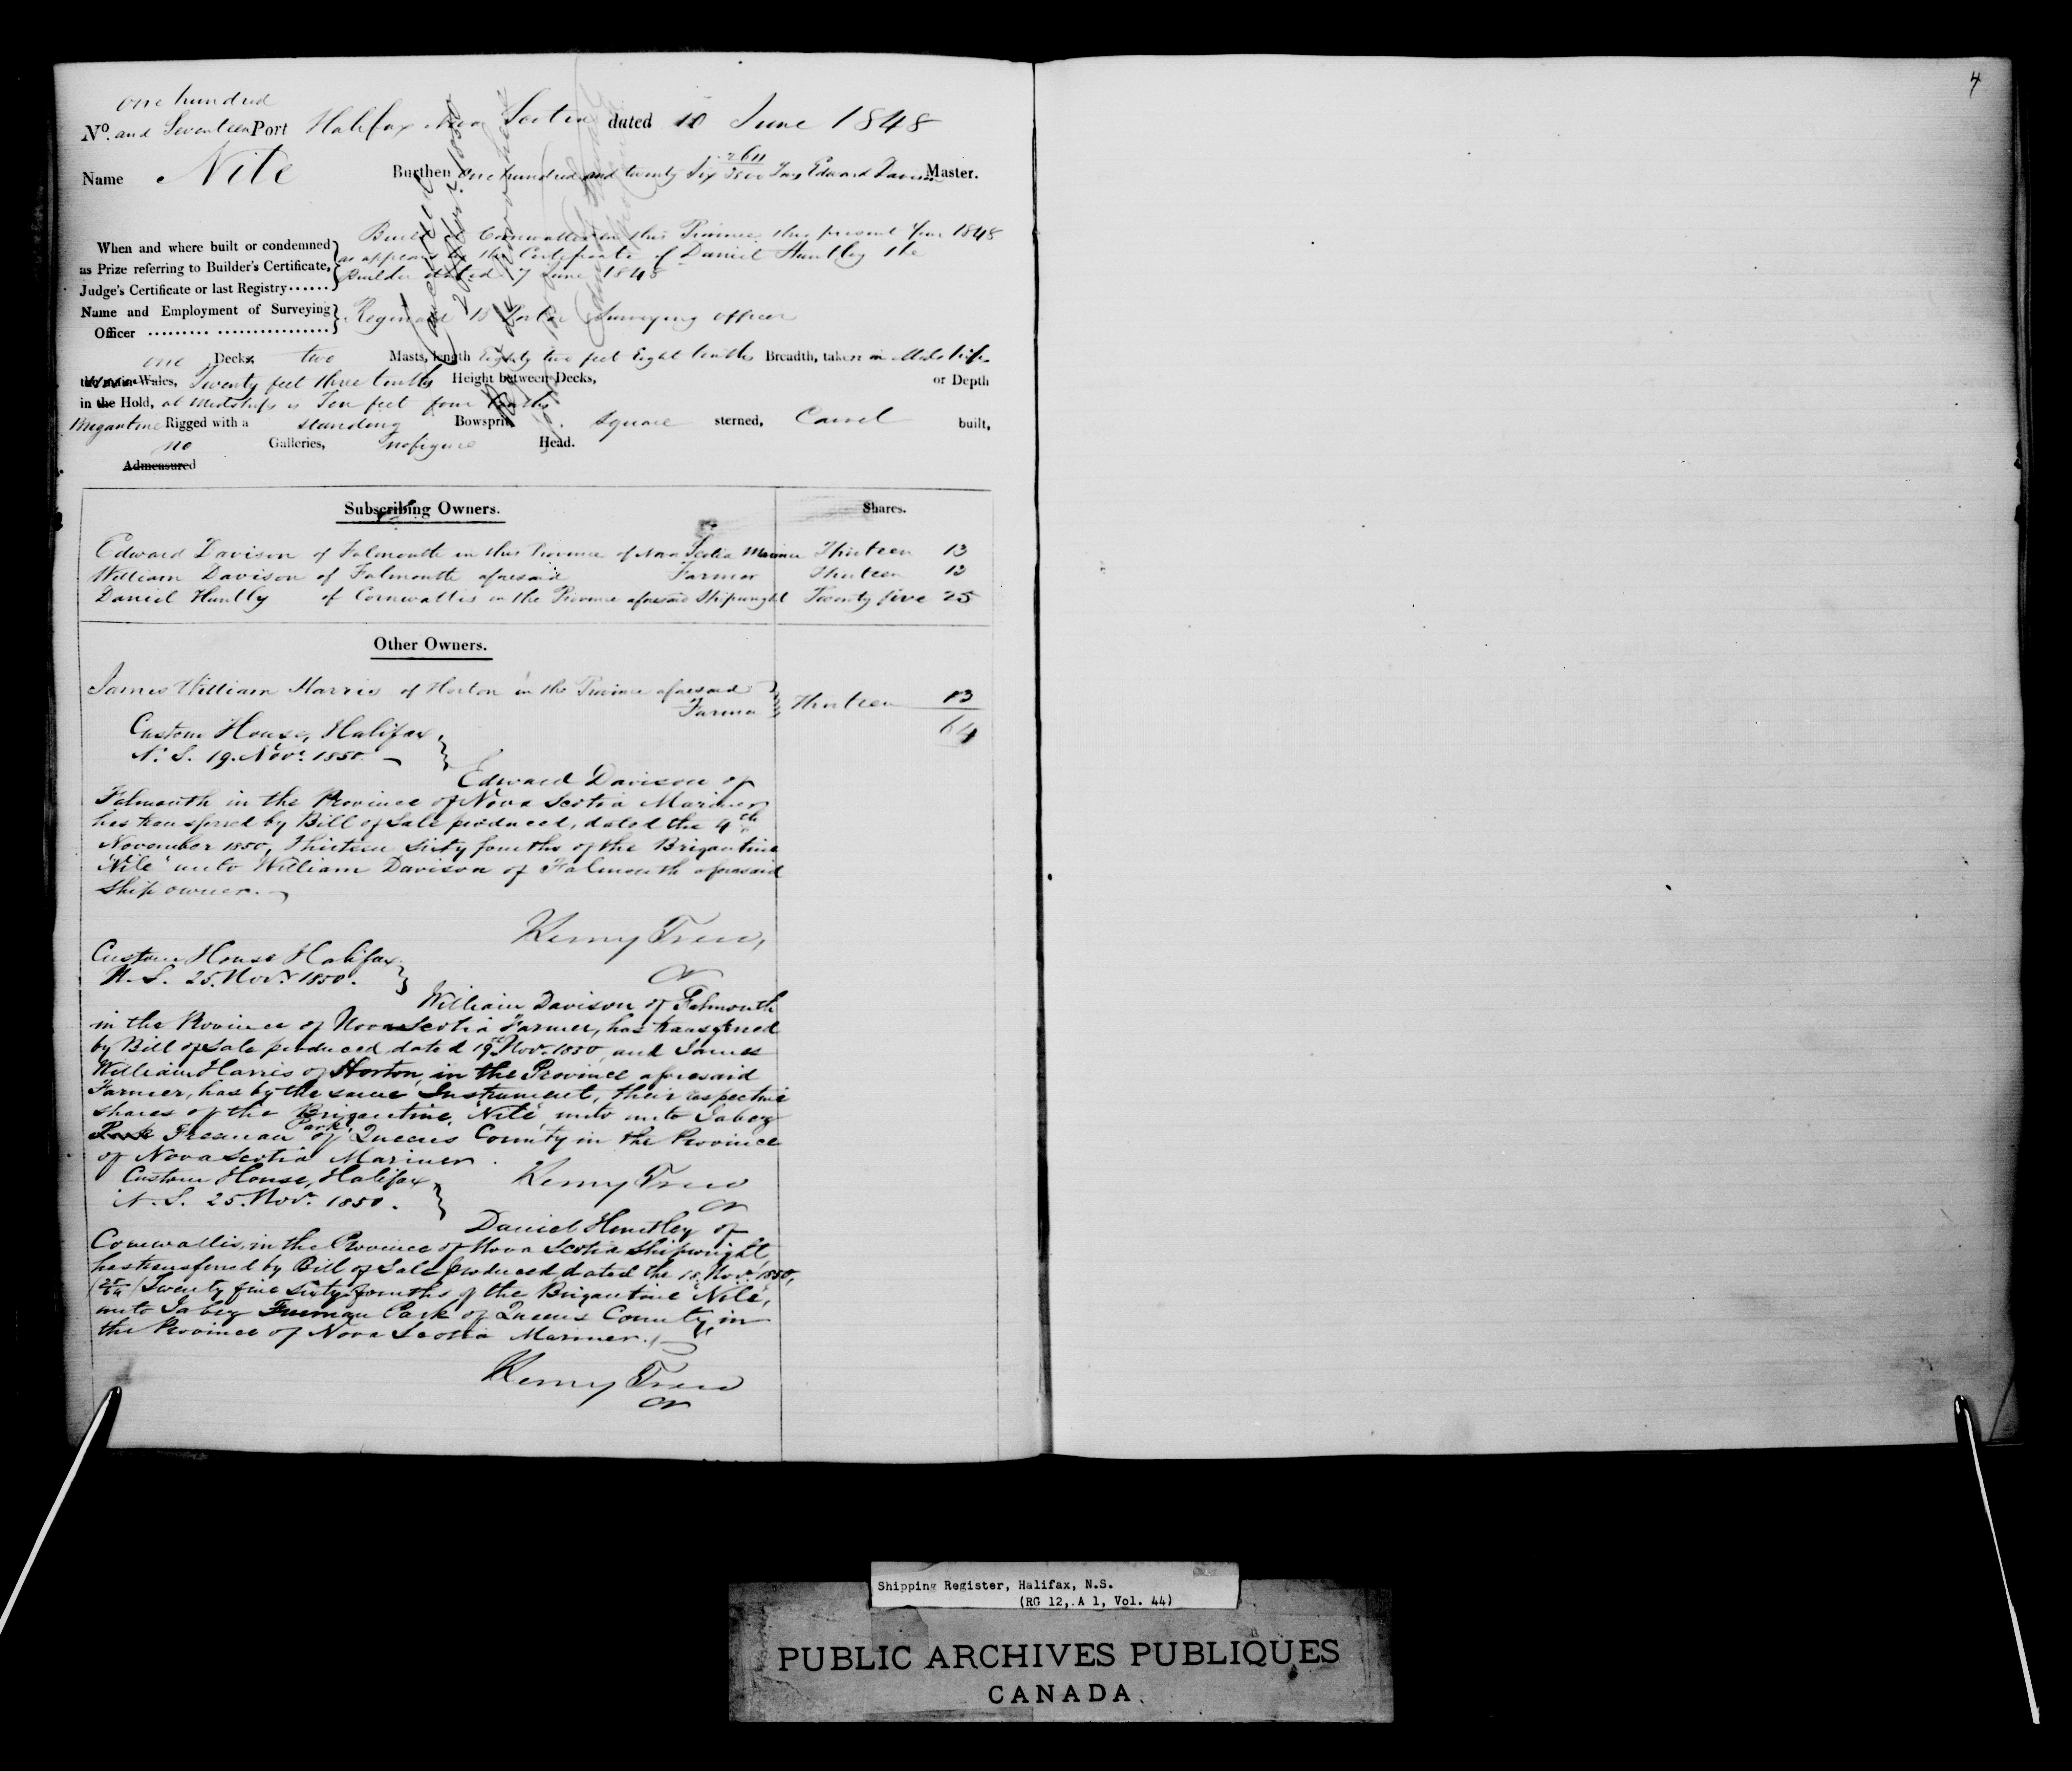 4
one hundred
No. and Seventeen Port Halifax Nova Scotia dated 10 June 1848
Name Nile Burthen one hundred and twenty Six Tons Edward Davison Master.
When and where built or condemned as Prize referring to Builder's Certificate, Judge's Certificate or last Registry......
Built at Cornwallis in this Province this present Year 1848
as appears by the Certificate of Daniel Huntley the
Builder dated 7 June 1848
Name and Employment of Surveying Officer ......... ................
Reginald B Porter Surveying officer
one Decks, two Masts, length Eighty two feet Eight tenths Breadth, taken in Midships
the main Wales, Twenty feet three tenths Height between Decks, or Depth
in the Hold, at Midships is Ten feet four tenths
Brigantine Rigged with a standing Bowsprit, square sterned, Carvel built,
no Galleries, no figure Head.
Admeasured
Cancelled
Subscribing Owners. Shares.
Edward Davison of Falmouth in this Province of Nova Scotia Mariner Thirteen 13
William Davison of Falmouth aforesaid Farmer Thirteen 13
Daniel Huntly of Cornwallis in the Province aforesaid Shipwright Twenty five 25
Other Owners.
James William Harris of Horton in the Province aforesaid
Farmer Thirteen 13
64
Custom House, Halifax,
N. S. 19. Novr. 1850.
Edward Davison of
Falmouth in the Province of Nova Scotia Mariner
has transferred by Bill of Sale produced, dated the 4th
November 1850, Thirteen Sixty fourths of the Brigantine
"Nile" unto William Davison of Falmouth aforesaid
Ship owner.
Custom House Halifax
N. S. 25. Novr. 1850.
William Davison of Falmouth
in the Province of Nova Scotia Farmer, has transferred
by Bill of Sale produced dated 19th Novr. 1850, and James
William Harris of Horton, in the Province aforesaid
Farmer, has by the same Instrument, their respective
shares of the Brigantine, "Nile", unto unto Jabez
Park Freeman Park of Queens County in the Province
of Nova Scotia Mariner.
Custom House, Halifax,
N. S. 25. Novr. 1850.
Daniel Huntley of
Cornwallis, in the Province of Nova Scotia Shipwright,
has transferred by Bill of Sale produced, dated the 18. Novr. 1850,
(25/64) Twenty five Sixty fourths of the Brigantine "Nile",
unto Jabez Freeman Park of Queens County, in
the Province of Nova Scotia Mariner.
Shipping Register, Halifax, N.S.
(RG 12, A 1, Vol. 44)
PUBLIC ARCHIVES PUBLIQUES
CANADA